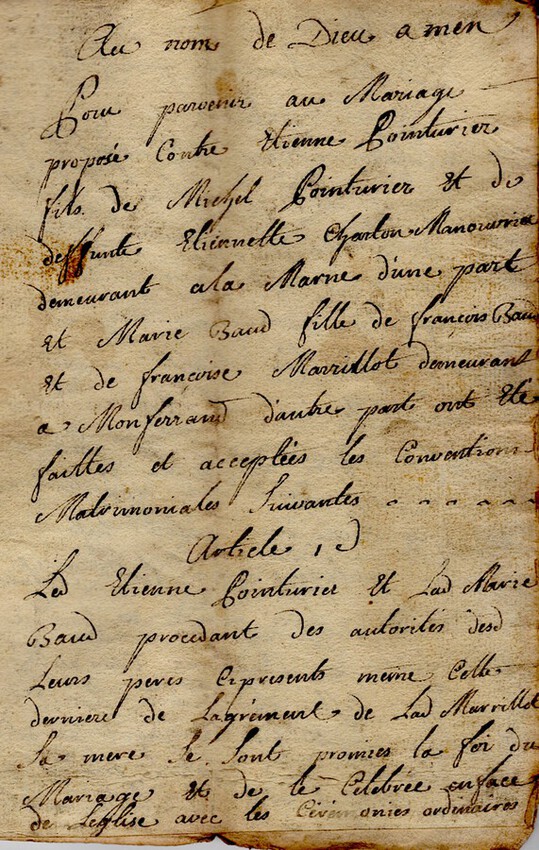 Au nom de Dieu amen
Pour parvenir au Mariage
proposé Contre Etienne Pointurier
fils de Michel Pointurier Et de
deffunte Etiennette Charton Manouvrier
demeurant ala Marne d'une part
Et Marie Baud fille de francois Baud
Et de francoise Marrillot demeurant
a Monferrand d'autre part ont Eté
faittes et acceptées les Conventions
Matrimoniales Suivantes
Article 1
Led Etienne Pointurier Et Lad Marie
Baud procedant des autorités desd
Leurs peres Cipresents meme Cette
derniere de Lagrement de Lad Marrillot
Sa mere Se Sont promies la foi du
Mariage Et de le Celebrée enface
de Leglise avec les Cérémonies ordinaires